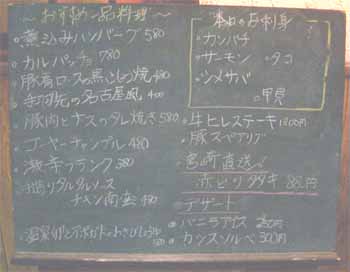 ～おすすめ一品料理～
・煮込みハンバーグ 580
・カルパッチョ 780
・豚肩ロースの黒こしょう焼 480
・手羽先の名古屋風 400
・豚肉とナスのタレ焼き 580
・ゴーヤーチャンプル 480
・激辛フランク 380
・手造りタルタルソース
チキン南蛮
・温泉卵とアボカドのわさびしょうゆ
本日のお刺身
・カンパチ
・サーモン ・タコ
・シメサバ
・甲貝
・牛ヒレステーキ
・豚スペアリブ
・宮崎直送!!
赤どりタタキ 880円
デザート
・バニラアイス
・カシスソルベ 300円